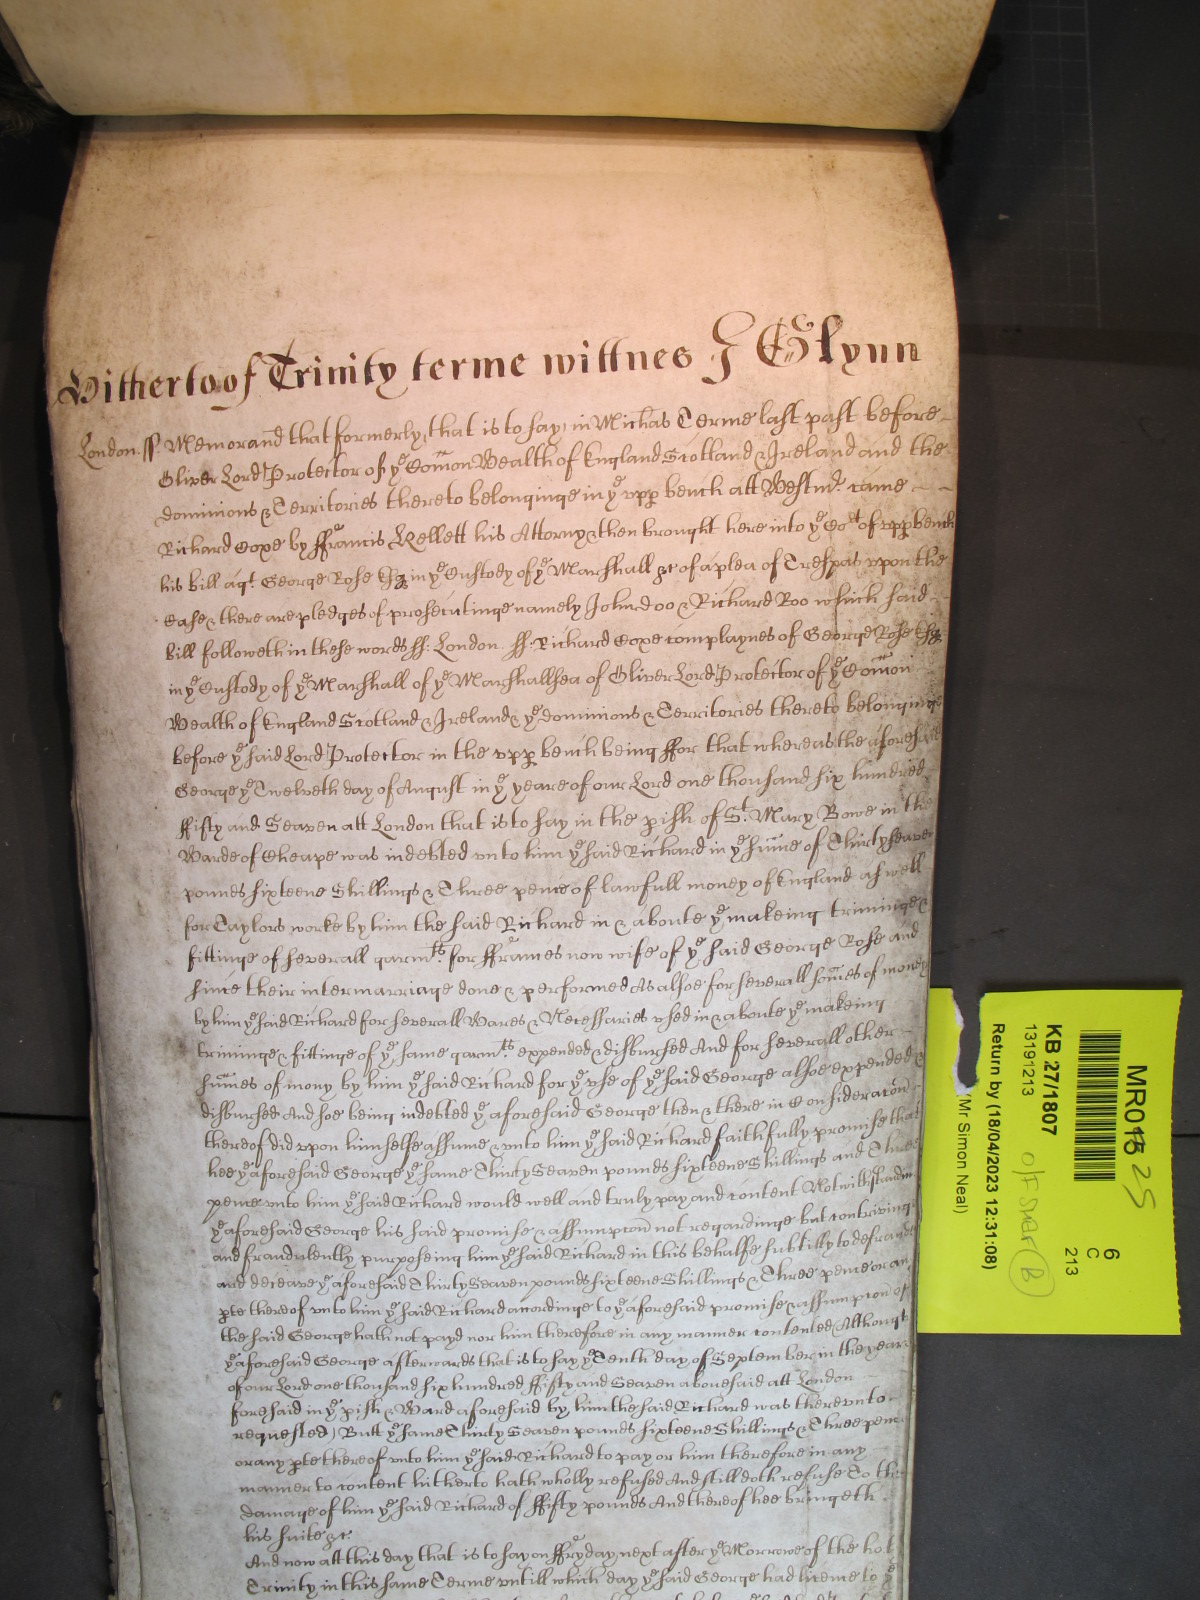 Hitherto of Trinity terme wittnes J Glynn
London ss Memorand that formerly that is to say in Michas Terme last past before
Oliver Lord Protector of ye Comon Wealth of England Scotland & Ireland and the
dominions & Territories thereto belonginge in ye upp bench att Westmr came
Richard Coxe by ffrancis Kellett his Attorny & then brought here into ye Cort of upp bench
his bill agt George Rose Esq in ye Custody of ye Marshall &c of a plea of Trespas vpon the
Case & there are pledges of prosecutinge namely John doo & Richard Roo which said
bill followeth in these words ss: London ss: Richard Coxe complaynes of George Rose Esq
in ye Custody of ye Marshall of ye Marshallsea of Oliver Lord Protector of ye Comon
Wealth of England Scotland & Ireland & ye dominions & Territories thereto belonginge
before ye said Lord Protector in the vpp bench being ffor that whereas the aforesaid
George ye Twelveth day of August in ye yeare of our Lord one thousand six hundred
ffifty and Seaven att London that is to say in the pish of St Mary Bowe in the
Warde of Cheape was indebted vnto him ye said Richard in ye sume of Thirty seaven
pounds sixteene Shillings & Three pence of lawfull money of England as well
for Taylors worke by him the said Richard in & aboute ye makeing triminge &
fittinge of severall garmts for ffrances now wife of ye said George Rose and
since their intermarriage done & performed As alsoe for severall somes of money
by him ye said Richard for severall Wares & Necessaries vsed in & aboute ye makeing
triminge & fittinge of ye same garmts expended & disbursed And for severall other
sumes of mony by him ye said Richard for ye vse of ye said George alsoe expended &
disbursed And soe being indebted ye aforesaid George then & there in Consideracon
thereof did vpon himselfe assume & vnto him ye said Richard faithfully promise that
hee ye aforesaid George ye same Thirty Seaven pounds sixteene Shillings and Three
pence vnto him ye said Richard would well and truly pay and content Notwithstandin
ye aforesaid George his said promise & assumpcon not regardinge but contriving
and fraudulently purposeing him ye said Richard in this behalfe subtilly to defraude
and deceave ye aforesaid Thirty Seaven pounds sixteene Shillings & Three pence or any
pte thereof vnto him ye said Richard accordinge to ye aforesaid promise & assumpcon of
the said George hath not payd nor him therefore in any manner contented Although
ye aforesaid George afterwards that is to say ye Tenth day of September in the yeare
of our Lord one thousand six hundred ffifty and Seaven abovesaid att London
foresaid in ye pish & Ward aforesaid by him the said Richard was therevnto
requested) Butt ye same Thirty Seaven pounds sixteene Shillings & Three pence
or any pte thereof vnto him ye said Richard to pay or him therefore in any
manner to content hitherto hath wholly refused And still doth refuse To the
damage of him ye said Richard of ffifty pounds And thereof hee bringeth
his suite &c
And now att this day that is to say on ffryday next after ye Morrowe of the holy
Trinity in this same Terme vntill which day ye said George had licence to ye
MR015 25
6
C
213
KB 27/1807
13191213
O/F Shelf (B)
Return by (18/04/2023 12:31:08)
(Mr Simon Neal)